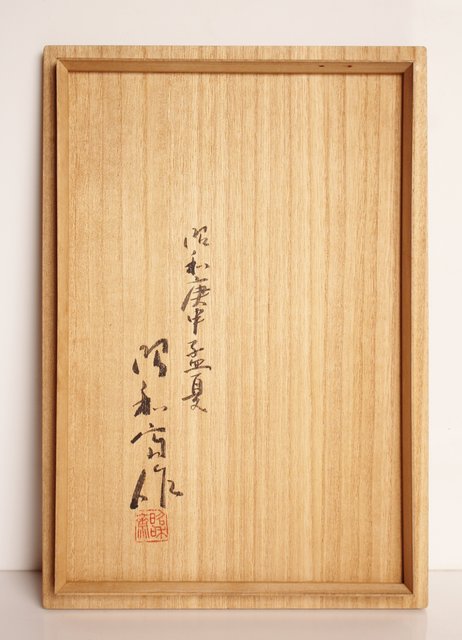 昭和庚申孟夏
昭和斎作